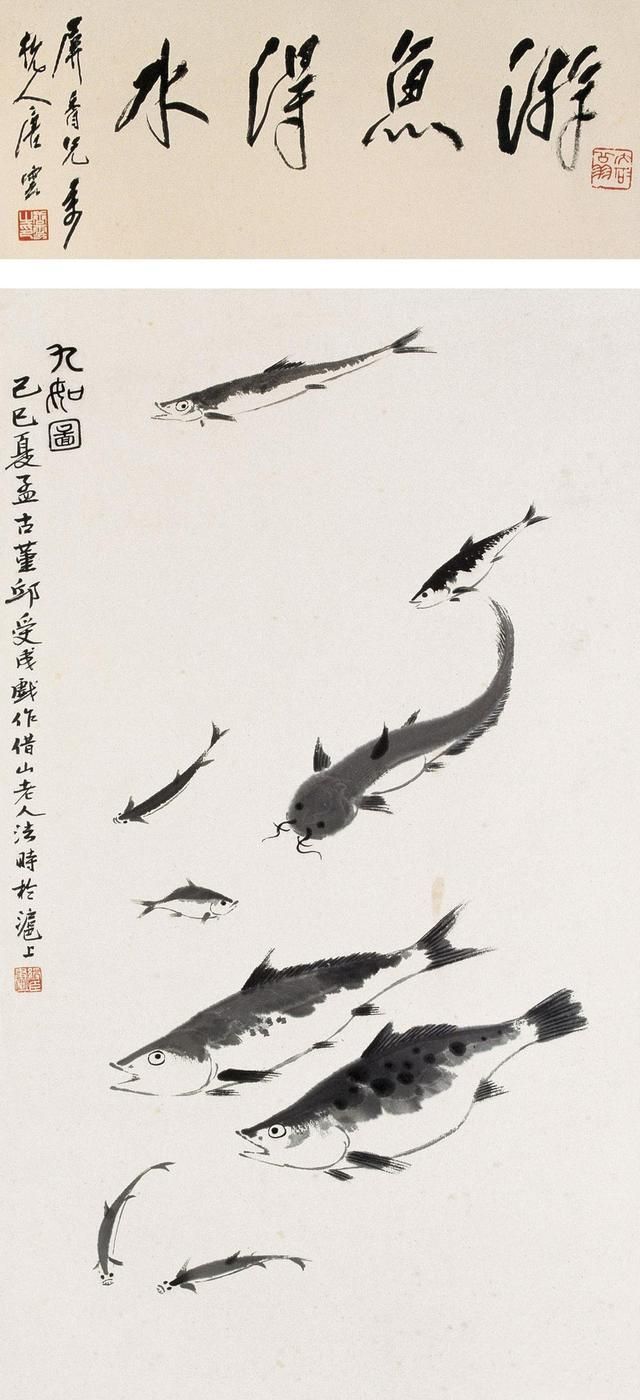 游魚得水
屏兄
杭人唐雲
九如圖
己巳夏孟古堇邱受成戲作借山老人法時於滬上